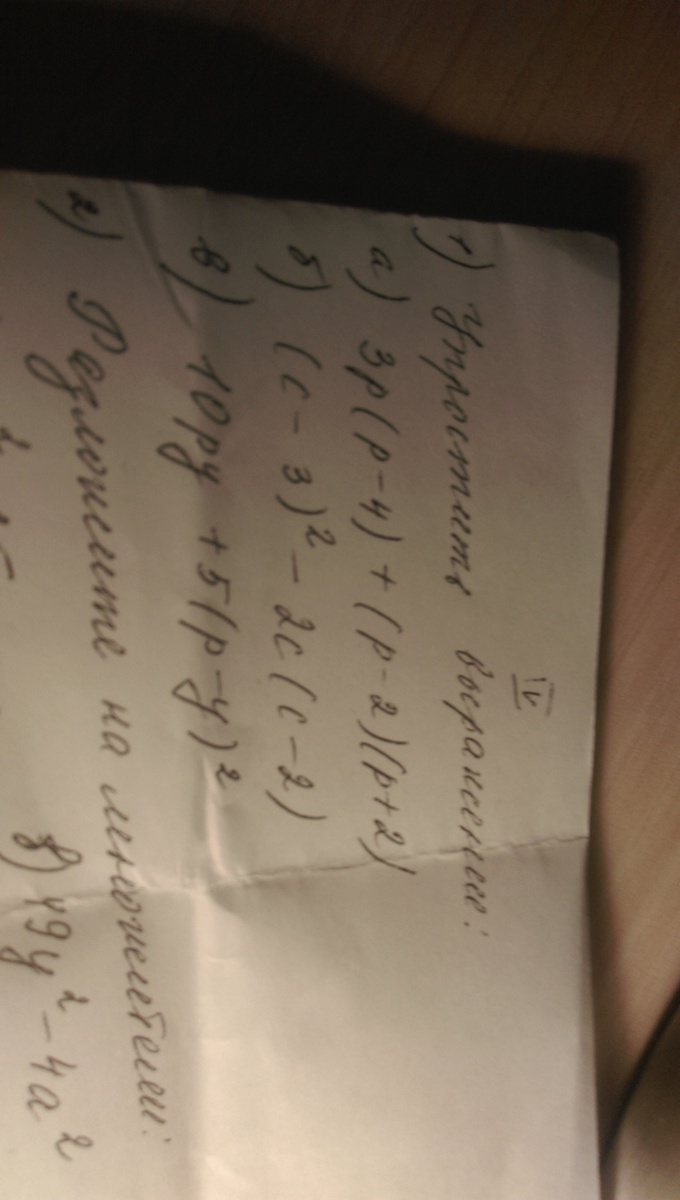 IV
1) Упростить выражение:
а) 3p(p-4)+(p-2)(p+2)
б) (c-3)² - 2c(c-2)
в) 10py + 5(p-y)²
2) Разложите на множителей:
в) 49y² - 4a²